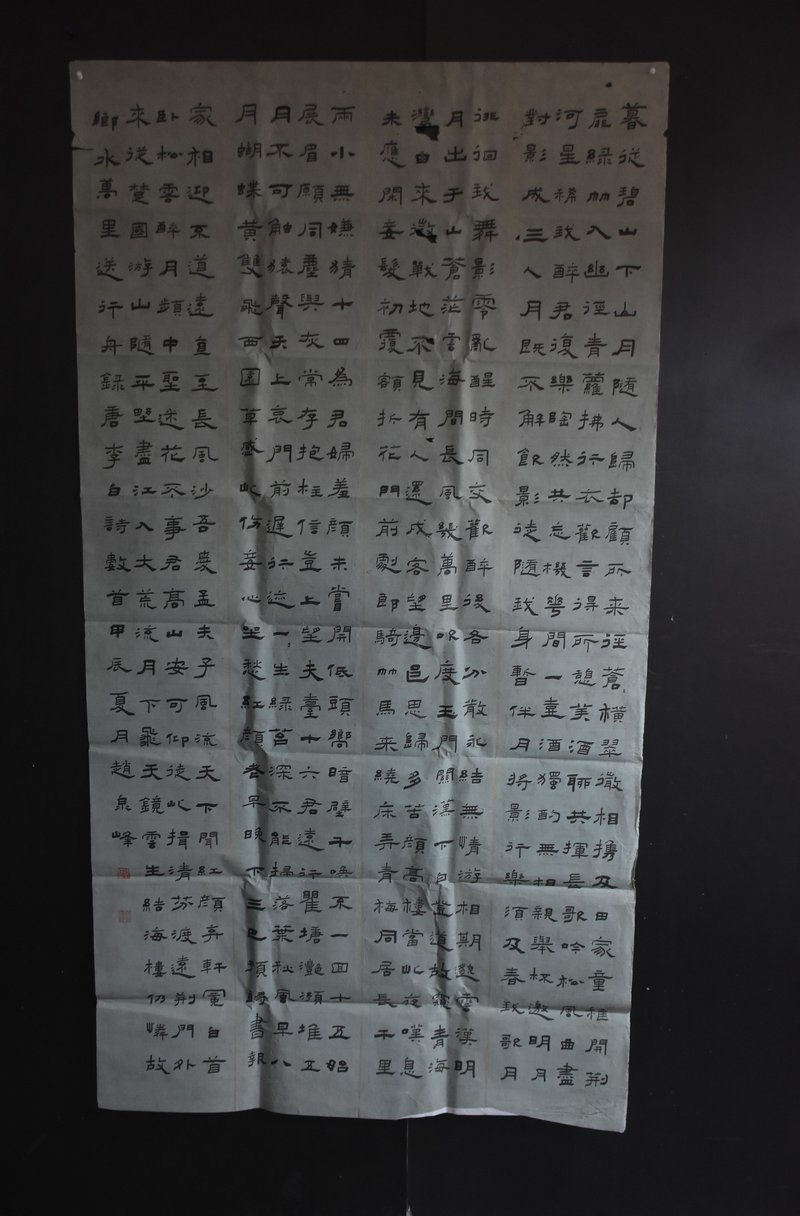 暮從碧山下山月隨人歸却顧所來徑蒼々橫翠微相携及田家童稚開荆
扉綠竹入幽徑青蘿拂行衣歡言得所憩美酒聊共揮長歌吟松風曲盡
河星稀我醉君復樂陶然共忘機花間一壺酒獨酌無相親舉杯邀明月
對影成三人月既不解飲影徒隨我身暫伴月將影行樂須及春我歌月
徘徊我舞影零亂醒時同交歡醉後各分散永結無情游相期邈雲漢明
月出天山蒼茫雲海間長風幾萬里吹度玉門關漢下白登道胡窺青海
灣由來征戰地不見有人還戍客望邊邑思歸多苦顏高樓當此夜嘆息
未應閑妾髮初覆額折花門前劇郎騎竹馬來繞床弄青梅同居長干里
兩小無嫌猜十四為君婦羞顏未嘗開低頭嚮暗壁千喚不一回十五始
展眉願同塵與灰常存抱柱信豈上望夫臺十六君遠行瞿塘灩澦堆五
月不可觸猿聲天上哀門前遲行迹一々生綠苔深不能掃落葉秋風早八
月蝴蝶黃雙飛西園草感此傷妾心坐愁紅顏老早晚下三巴預將書報
家相迎不道遠直至長風沙吾愛孟夫子風流天下聞紅顏弃軒冕白首
卧松雲醉月頻中聖迷花不事君高山安可仰徒此揖清芬渡遠荆門外
來從楚國游山隨平野盡江入大荒流月下飛天鏡雲生結海樓仍憐故
鄉水萬里送行舟錄唐李白詩數首甲辰夏月趙泉峰